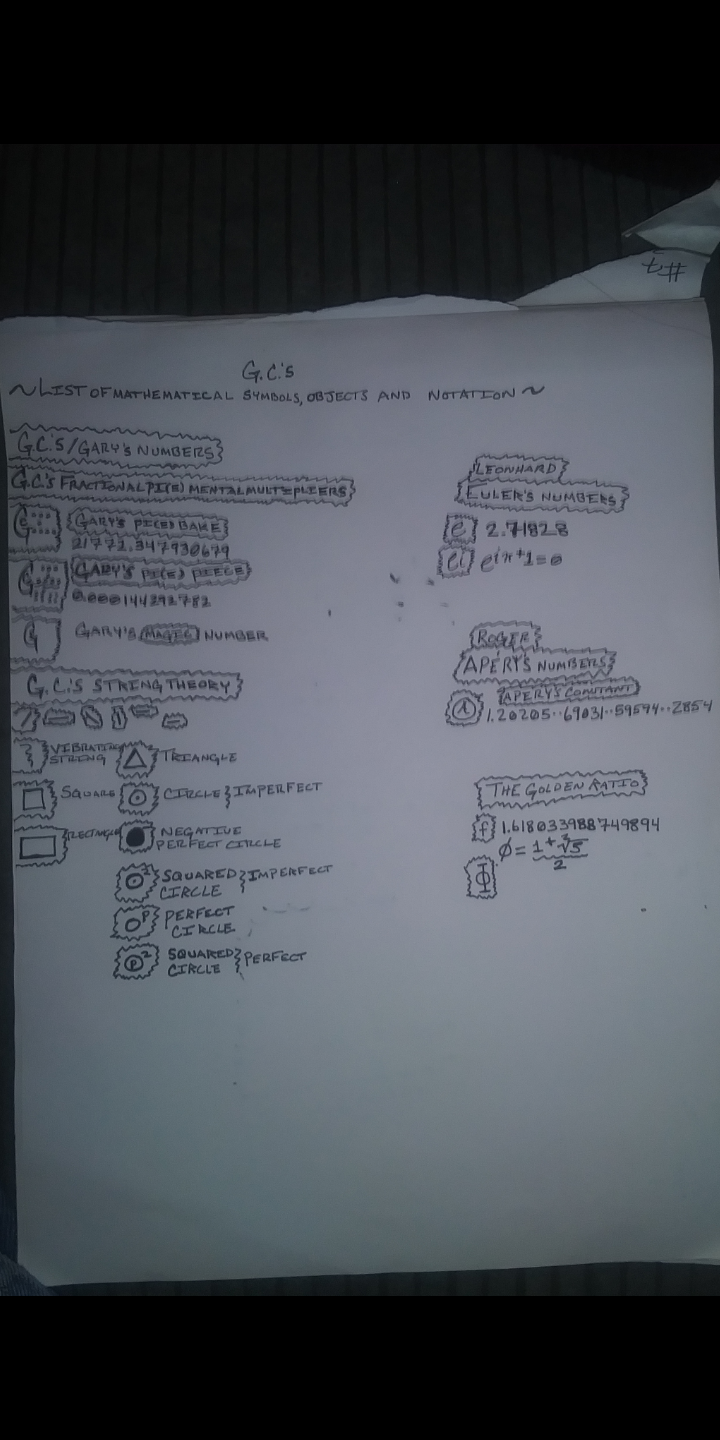 G.C.'S
~LIST OF MATHEMATICAL SYMBOLS, OBJECTS AND NOTATION~
G.C.'S/GARY'S NUMBERS
G.C.'S FRACTIONAL PI(E) MENTAL MULTIPLIERS
GARY'S PI(E) BAKE
21772.347930679
GARY'S PI(E) PIECE
0.000144292782
G GARY'S MAGIC NUMBER
G.C.'S STRING THEORY
VIBRATING STRING
TRIANGLE
SQUARE
CIRCLE} IMPERFECT
RECTANGLE
NEGATIVE
PERFECT CIRCLE
2 SQUARED} IMPERFECT
CIRCLE
P PERFECT
CIRCLE
P 2 SQUARED} PERFECT
CIRCLE
LEONHARD
EULER'S NUMBERS
e 2.71828
ei e^iπ+1=0
ROGER
APERY'S NUMBERS
APERY'S CONSTANT
A 1.20205..69031..59594..2854
THE GOLDEN RATIO
f 1.618033988749894
φ = 1+²√5
2
Φ
t#